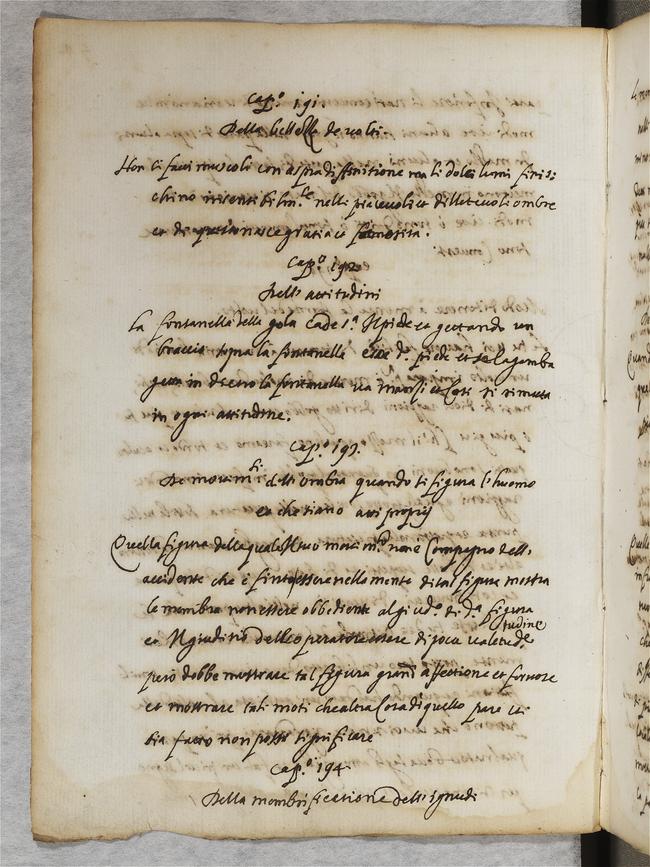 Cap.º 191.
Della bellezza de volti.
Non si facci muscoli con aspra difinitione ma li dolci lumi finis:
chino insensibilm.te nelli piacevoli et dilettevoli ombre
et di questo nasce gratia et formosità.
Cap.º 192
Dell'attitudini
La fontanella della gola cade s.ª il piede et gettando un
braccio sopra la fontanella esce d. piede et se la gamba
getta in dietro la fontanella va inanzi et così si rimuta
in ogni attitudine.
Cap.º 193.
De movim.ti delli membra quando si figura l'huomo
che siano atti proprij
Quella figura della quale il suo movim.to non è compagno dell'
accidente che è finto essere nella mente di tal figura mostra
le membra non essere obbediente al giud.º di d.ª figura
et il giuditio dell'operatore essere di poca valetudine
però debbe mostrare tal figura grand'affettione et fervore
et mostrare tali moti che altra cosa di quello pare che
sia fatto non possi significare
Cap.º 194.
Della membrificatione dell'ignudi